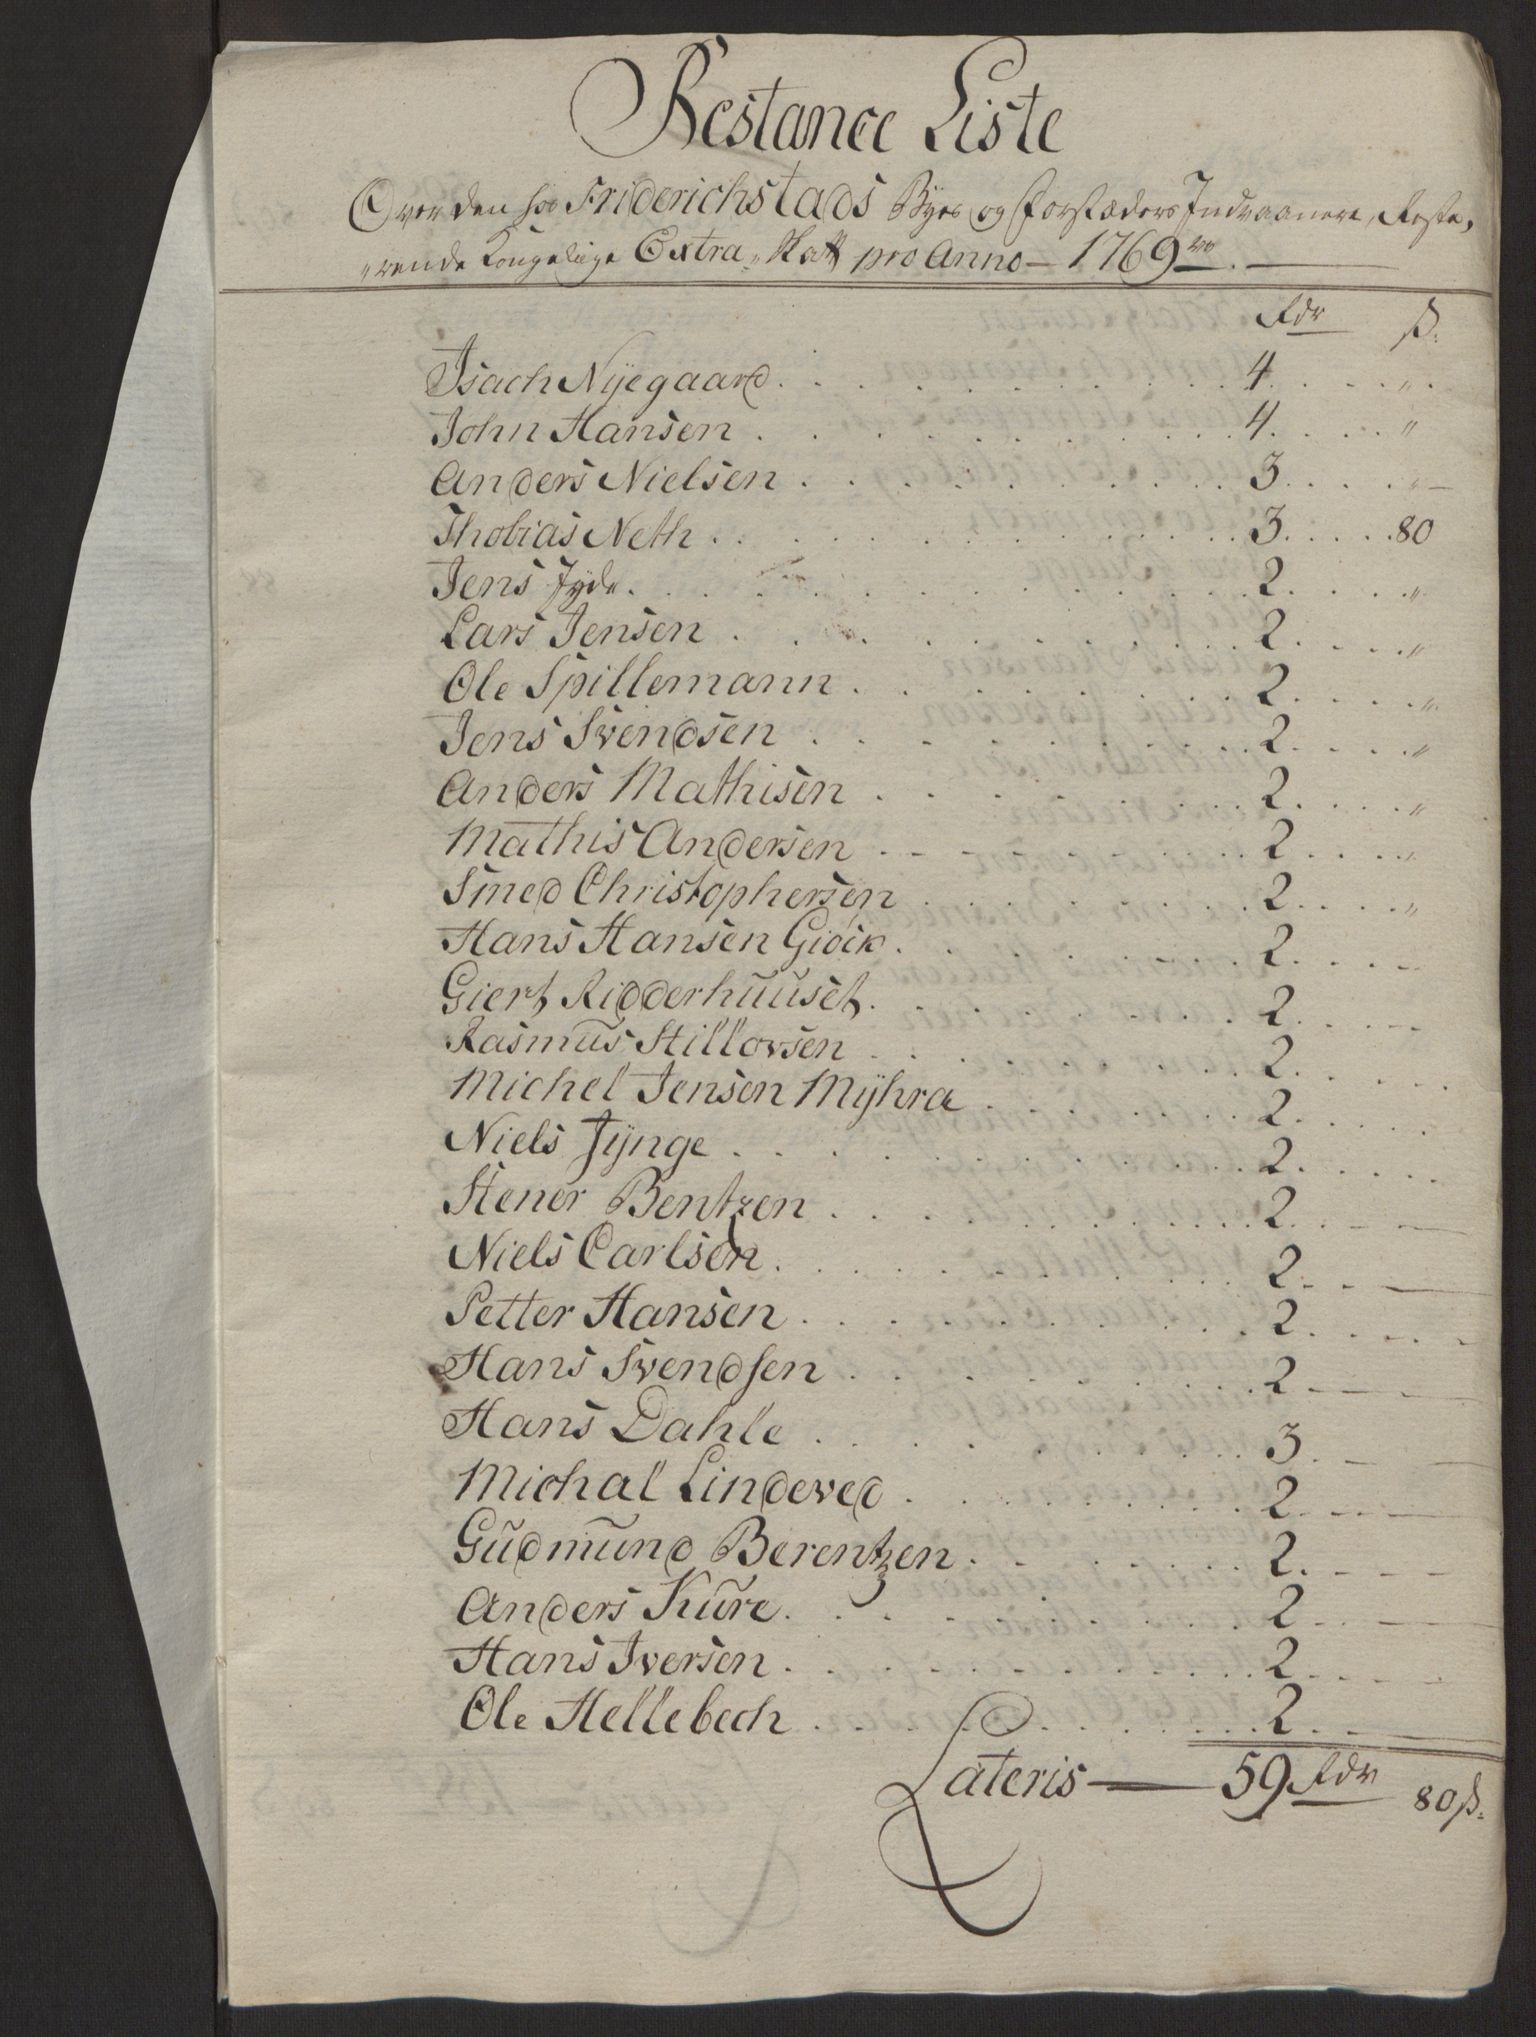 Restance Liste
Over den hos Friderichstads Byes og Forstæders Indvaanere, Reste,
"rende Kongelige Extra-Skatt pro Anno — 1769 —
Rdr ß.
Isach Nÿegaard . . . 4 . . . "
John Hansen . . . 4 . . . "
Anders Nielsen . . . 3 . . . "
Thobias Neth . . . 3 . . . 80
Jens Jÿde . . . 2 . . . "
Lars Jensen . . . 2 . . . "
Ole Spillemann . . . 2 . . . "
Jens Svendsen . . . 2 . . . "
Anders Mathisen . . . 2 . . . "
Mathis Andersen . . . 2 . . . "
Smed Christophersen . . . 2 . . . "
Hans Hansen Giöck . . . 2 . . .
Giert Ridderhuuset . . . 2 . . .
Rasmus Stillovsen . . . 2 . . .
Michel Jensen Mÿhra . . . 2 . . .
Niels Jÿnge . . . 2 . . .
Stener Bentzen . . . 2 . . .
Niels Carlsen . . . 2 . . .
Petter Hansen . . . 2 . . .
Hans Svendsen . . . 2 . . .
Hans Dahle . . . 3 . . .
Michal Lindeved . . . 2 . . .
Gudmund Berentzen . . . 2 . . .
Anders Kure . . . 2 . . .
Hans Iversen . . . 2 . . .
Ole Hellebech . . . 2 . . .
Lateris — 59 Rdr 80 ß.